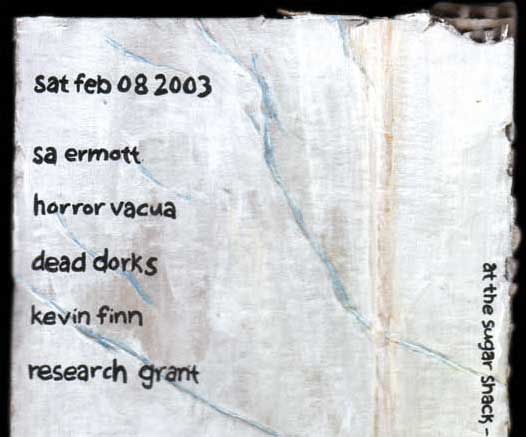 sat feb 08 2003
sa ermott
horror vacua
dead dorks
kevin finn
research grant
at the sugar shack -